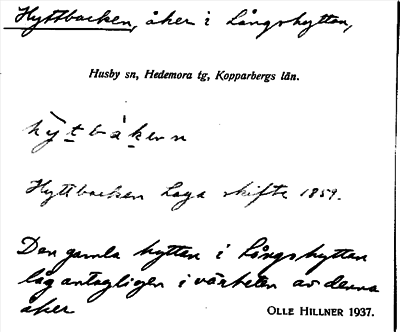 Hyttbacken, åker i Långshyttan,
Husby sn, Hedemora tg, Kopparbergs län.
hỳtbàken
Hyttbacken Laga skifte 1859.
Den gamla hyttan i Långshyttan
låg antagligen i närheten av denna
åker
OLLE HILLNER 1937.